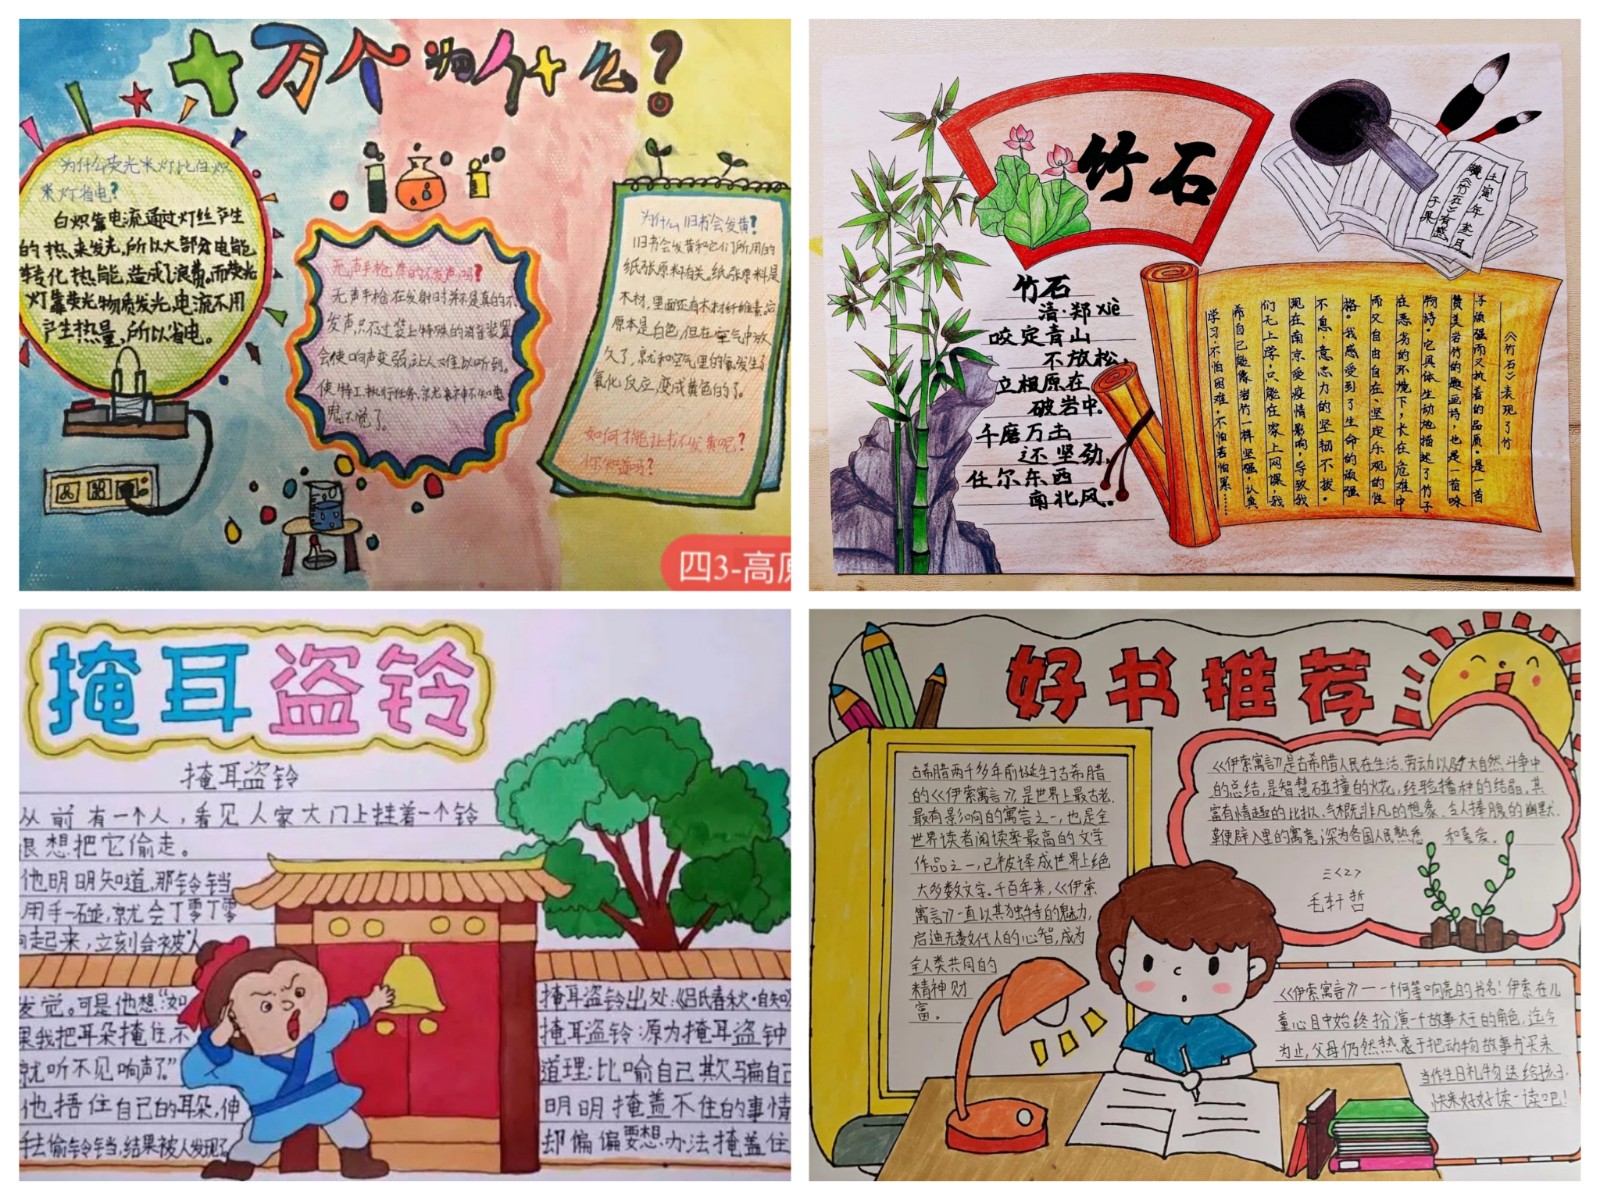 十万个为什么?
为什么荧光灯比白炽
灯省电?
白炽靠电流通过灯丝产生
的热来发光,所以大部分电能
转化热能,造成了浪费,而荧光
灯靠荧光物质发光,电流不用
产生热量,所以省电。
无声手枪真的不发声吗?
无声手枪在发射时并不是真的不
发声只不过装上特殊的消音装置
会使响声变弱,让人难以听到。
使特工执行任务,
鬼不觉了。
为什么旧书会发黄?
旧书会发黄和它们所用的
纸张原料有关。纸张原料是
木材,里面还有木材纤维素,它
原本是白色,但在空气中放
久了,就和空气里的氧发生了
氧化反应,变成黄色的了。
如何才能让书不发黄呢?
你知道吗?
四3-高原
竹石
竹石
清·郑xiè
咬定青山
不放松,
立根原在
破岩中。
千磨万击
还坚劲,
任尔东西
南北风。
《竹石》表现了竹
子顽强而又执着的品质。是一首
赞美岩竹的题画诗,也是一首咏
物诗。它具体生动地描述了竹子
在恶劣的环境下,长在危难中
而又自由自在、坚定乐观的性
格。我感受到了生命的顽强
不息,意志力的坚韧不拔。
现在南京受疫情影响,导致我
们无上学,只能在家上网课,我
希自己能像岩竹一样坚强,认真
学习,不怕困难,不怕苦怕累……
掩耳盗铃
掩耳盗铃
从前有一个人,看见人家大门上挂着一个铃
很想把它偷走。
他明明知道,那铃铛
用手一碰,就会丁零丁零
响起来,立刻会被人
发觉。可是他想:“如
果我把耳朵掩住,不
就听不见响声了”
他捂住自己的耳朵,伸
手去偷铃铛,结果被人发现了
掩耳盗铃出处:《吕氏春秋·自知
掩耳盗铃:原为掩耳盗钟
道理:比喻自己欺骗自己
明明掩盖不住的事情
却偏偏要想办法掩盖住
好书推荐
古希腊两千多年前诞生于古希腊
的《伊索寓言》,是世界上最古老、
最有影响的寓言之一,也是全
世界读者阅读率最高的文学
作品之一,已被译成世界上绝
大多数文字。千百年来,《伊索
寓言》一直以其独特的魅力,
启迪无数代人的心智,成为
全人类共同的
精神财
富。
《伊索寓言》是古希腊人民在生活、劳动以及与大自然斗争中
的总结,是智慧碰撞的火花,经验播种的结晶,其
富有情趣的比拟、气概非凡的想象、令人捧腹的幽默、
鞭辟入里的寓意,深为各国人民熟悉和喜爱。
三<2>
毛轩哲
《伊索寓言》——一个何等响亮的书名!伊索在儿
童心目中始终扮演一个故事大王的角色,迄今
为止,父母仍然热衷于把动物故事书买来
当作生日礼物送给孩子。
快来好好读一读吧!